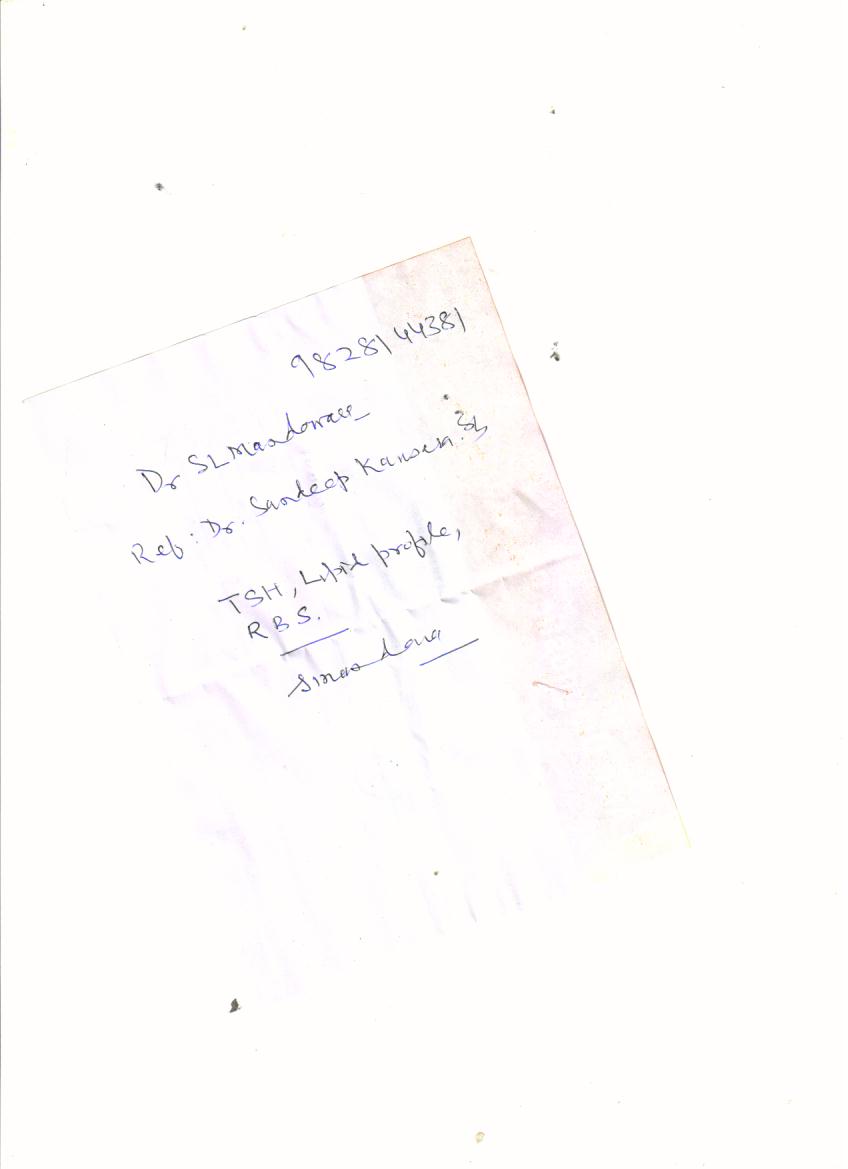 9828144381
Dr SL Mandowara
Ref: Dr. Sandeep Kanwar.
TSH, Lipid profile,
RBS.